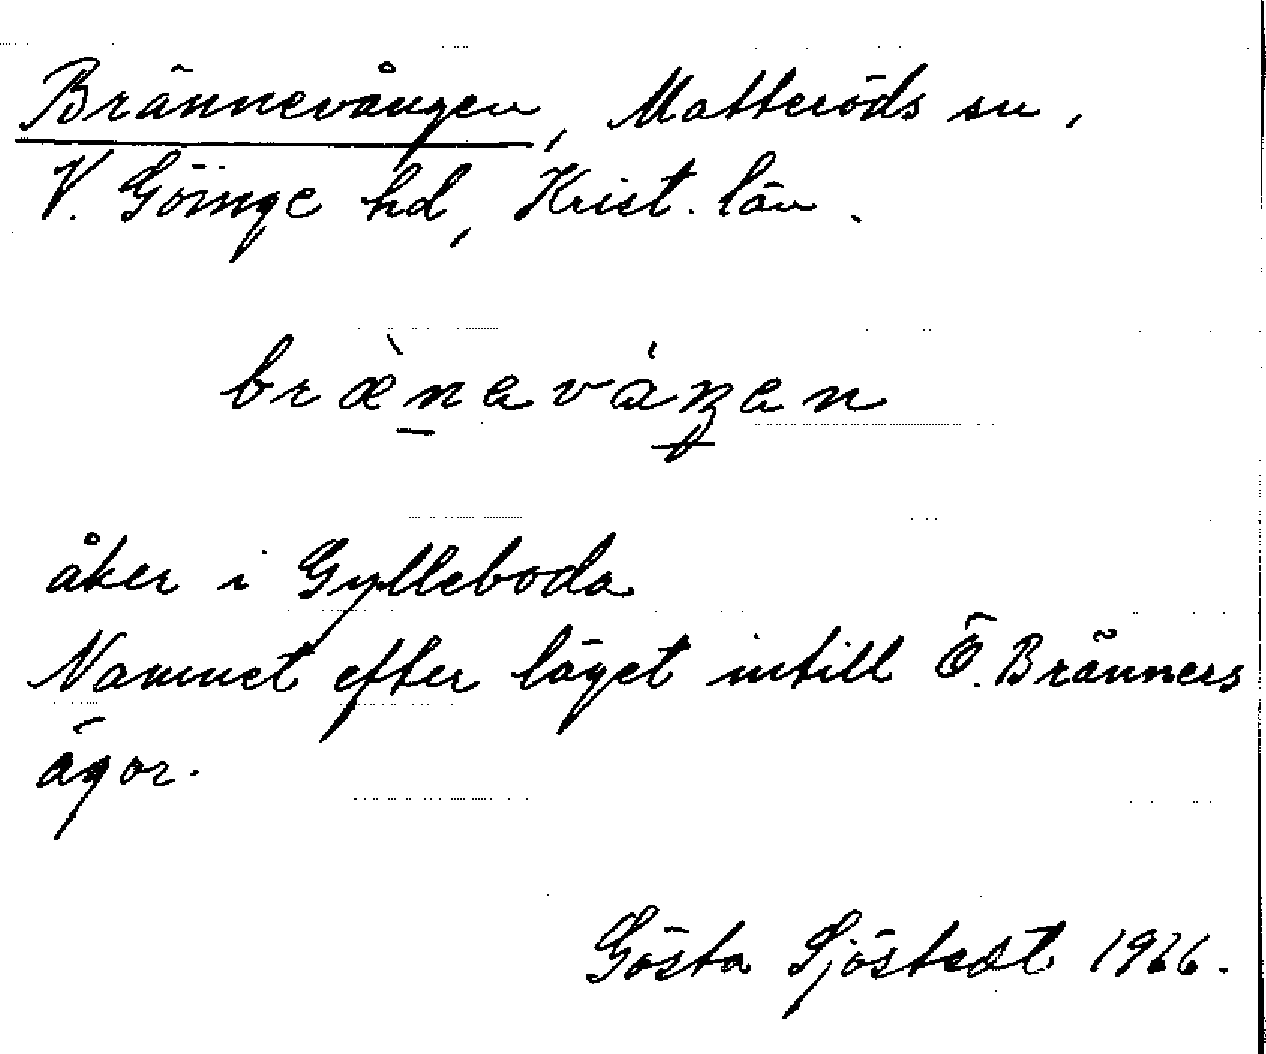 Brännevången, Matteröds sn,
V. Göinge hd, Krist. län.
bræ̀neváŋen
åker i Gylleboda
Namnet efter läget intill Ö. Bränners
ägor.
Gösta Sjöstedt 1926.